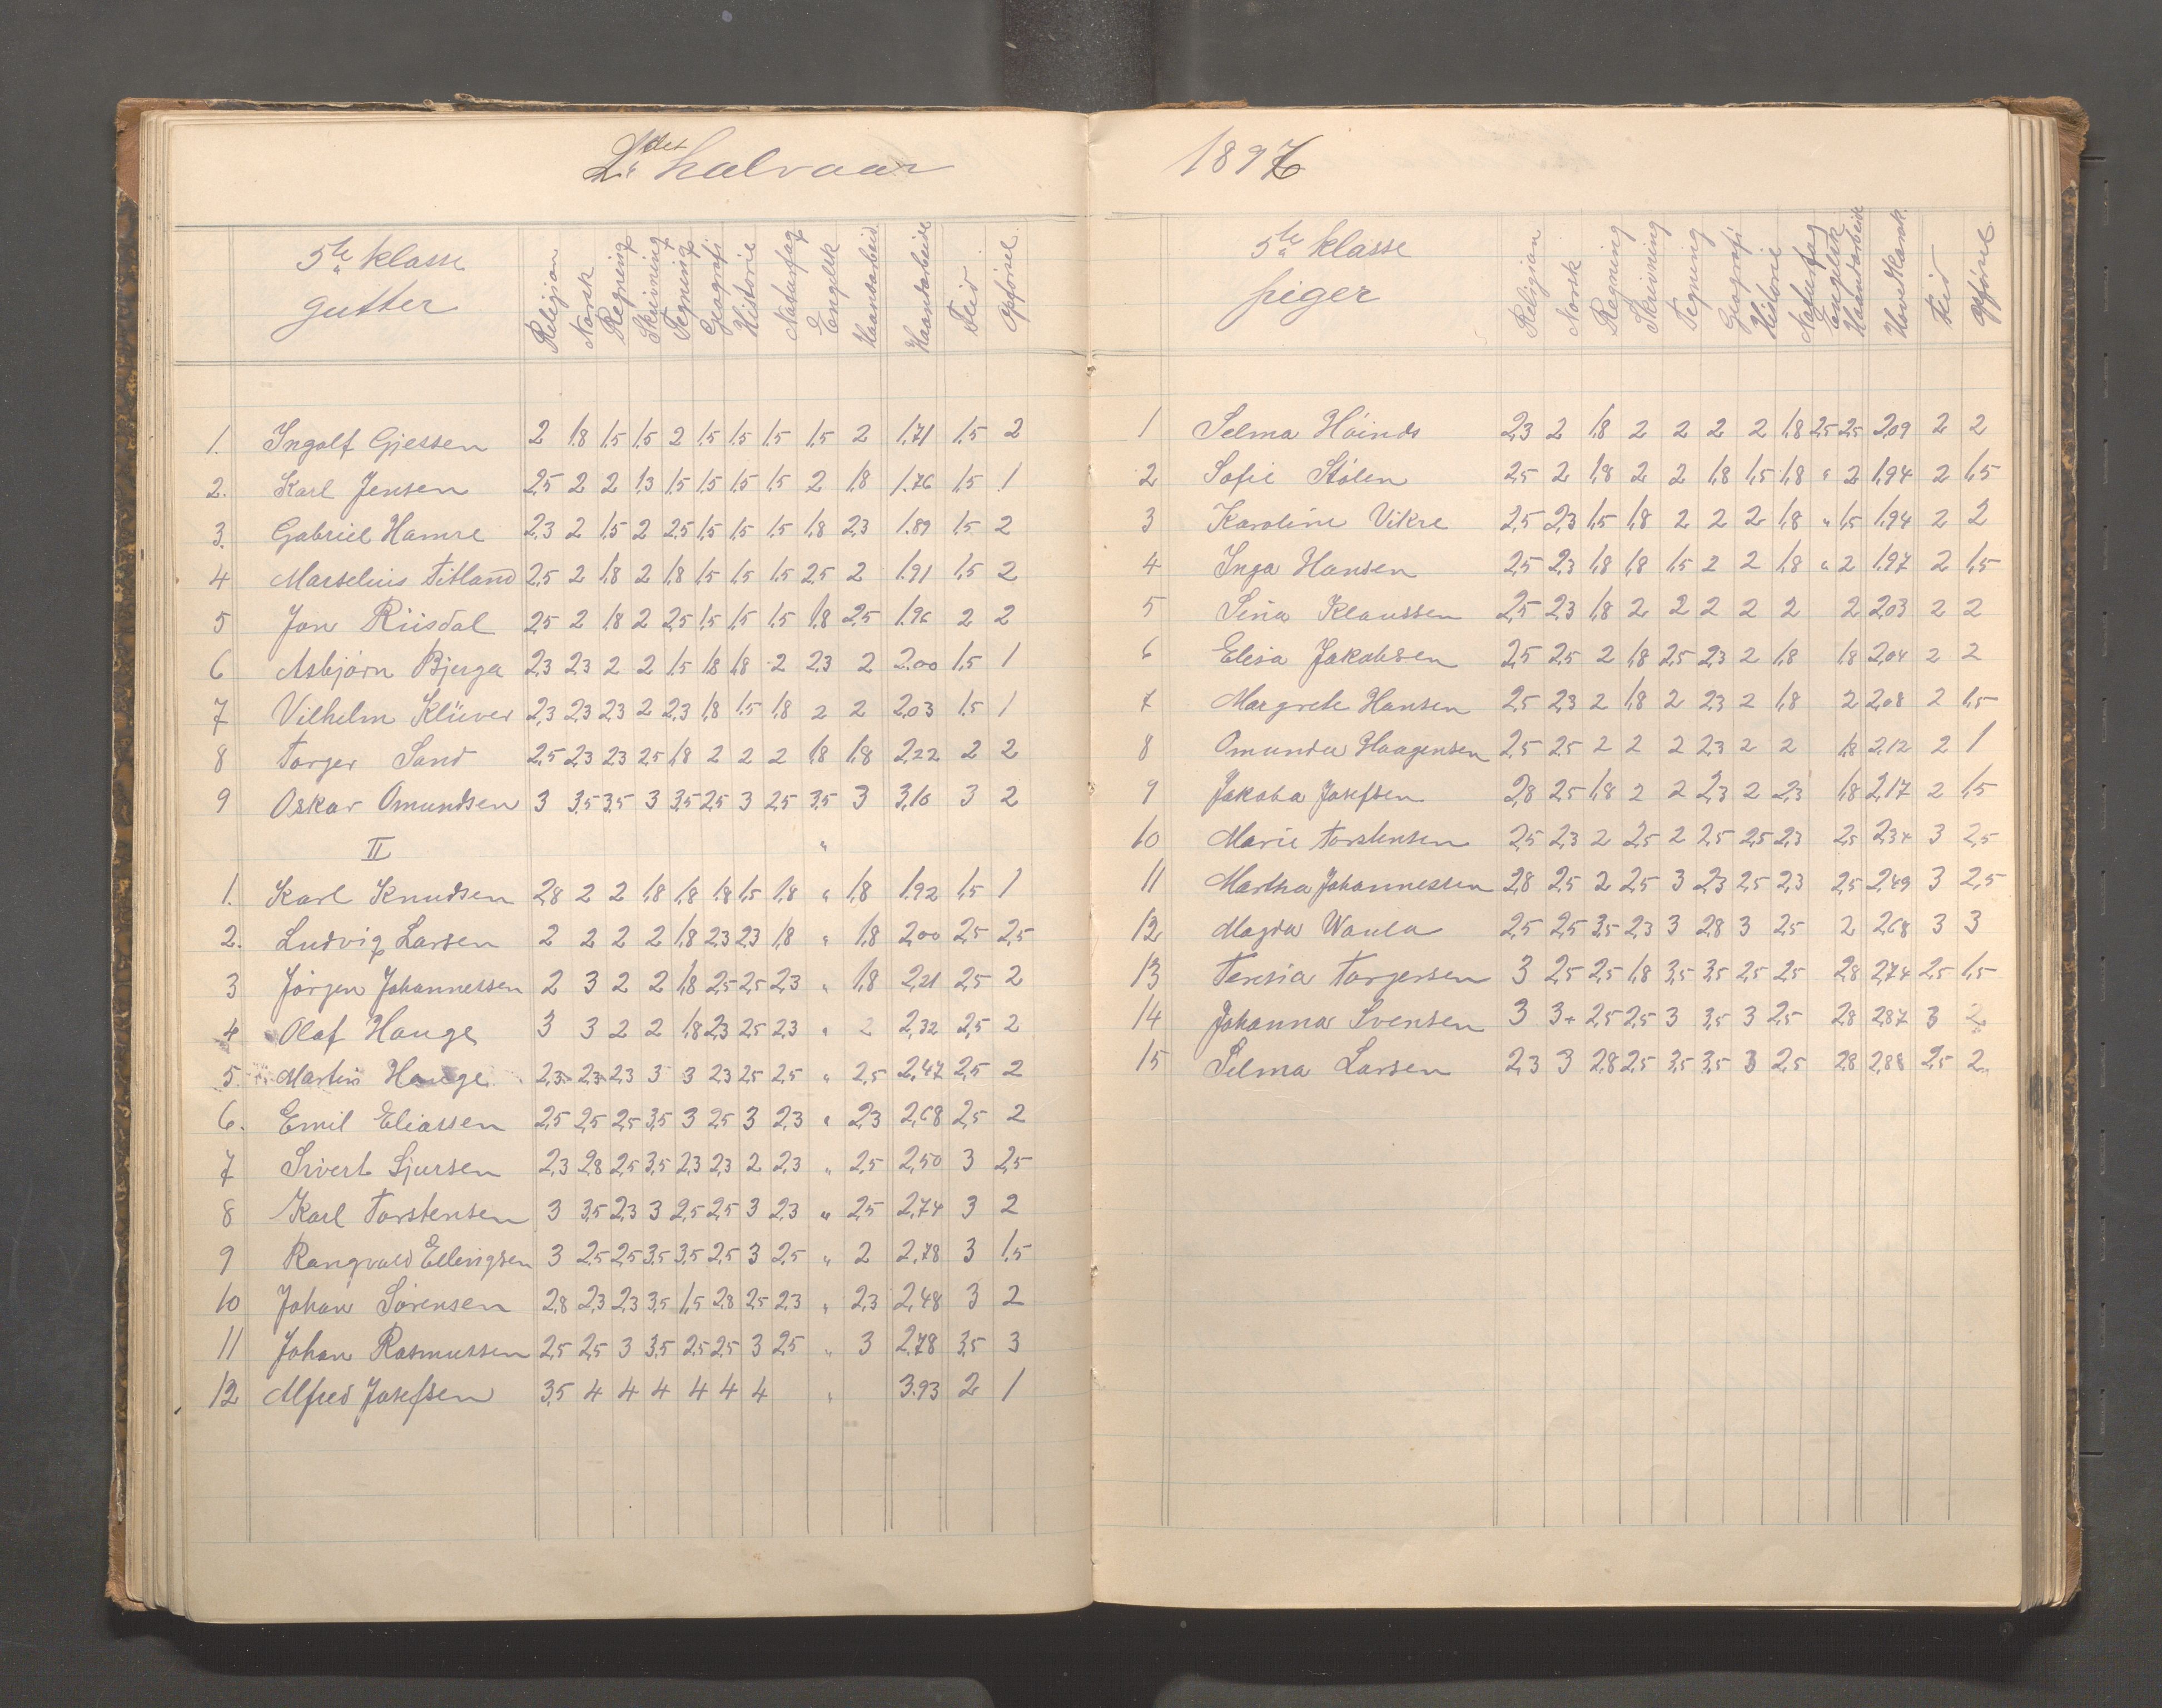 2det halvaar
5te klasse
gutter
Religion Norsk Regning Skrivning Tegning Geografi Historie Naturfag Engelsk Haandarbeid Haandarbeide Flid Opførsel
1. Ingolf Gjessen 2 1,8 1,5 1,5 2 1,5 1,5 1,5 1,5 2 1.71 1,5 2
2. Karl Jensen 2,5 2 2 1,3 1,5 1,5 1,5 1,5 2 1,8 1.76 1,5 1
3. Gabriel Hamre 2,3 2 1,5 2 2,5 1,5 1,5 1,5 1,8 2,3 1.89 1,5 2
4 Marselius Titland 2,5 2 1,8 2 1,8 1,5 1,5 1,5 2,5 2 1.91 1,5 2
5 Jon Riisdal 2,5 2 1,8 2 2,5 1,5 1,5 1,5 1,8 2,5 1.96 2 2
6 Asbjørn Bjerga 2,3 2,3 2 2 1,5 1,8 1,8 2 2,3 2 2.00 1,5 1
7 Vilhelm Klüver 2,3 2,3 2,3 2 2,3 1,8 1,5 1,8 2 2 2,03 1,5 1
8 Torger Sand 2,5 2,3 2,3 2,5 1,8 2 2 2 1,8 1,8 2,22 2 2
9 Oskar Omundsen 3 3,5 3,5 3 3,5 2,5 3 2,5 3,5 3 3,10 3 2
II "
1. Karl Knudsen 2,8 2 2 1,8 1,8 1,8 1,5 1,8 " 1,8 1.92 1,5 1
2. Ludvig Larsen 2 2 2 2 1,8 2,3 2,3 1,8 " 1,8 2,00 2,5 2,5
3 Jørgen Johannessen 2 3 2 2 1,8 2,5 2,5 2,3 " 1,8 2,21 2,5 2
4 Olaf Hauge 3 3 2 2 1,8 2,3 2,5 2,3 " 2 2,32 2,5 2
5. Martin Hauge 2,3 2,3 2,3 3 3 2,3 2,5 2,5 " 2,5 2,47 2,5 2
6. Emil Eliassen 2,5 2,5 2,5 3,5 3 2,5 3 2,3 " 2,3 2,68 2,5 2
7 Sivert Sjursen 2,3 2,8 2,5 3,5 2,3 2,3 2 2,3 " 2,5 2,50 3 2,5
8 Karl Torstensen 3 3,5 2,3 3 2,5 2,5 3 2,3 " 2,5 2,74 3 2
9 Rangvald Ellingsen 3 2,5 2,5 3,5 3,5 2,5 3 2,5 " 2 2,78 3 1,5
10 Johan Sørensen 2,8 2,3 2,3 3,5 1,5 2,8 2,5 2,3 " 2,3 2,48 3 2
11 Johan Rasmussen 2,5 2,5 3 3,5 2,5 2,5 3 2,5 " 3 2,78 3,5 3
12 Alfred Josefsen 3,5 4 4 4 4 4 4 " 3.93 2 1
1896
5te klasse
piger
Religion Norsk Regning Skrivning Tegning Geografi Historie Naturfag Engelsk Haandarbeide Hovedkarak. Flid Opførsel
1 Selma Høinds 2,3 2 1,8 2 2 2 2 1,8 2,5 2,5 2,09 2 2
2 Sofie Stølen 2,5 2 1,8 2 2 1,8 1,5 1,8 " 2 1.94 2 1,5
3 Karoline Vikre 2,5 2,3 1,5 1,8 2 2 2 1,8 " 1,5 1.94 2 2
4 Inga Hansen 2,5 2,3 1,8 1,8 1,5 2 2 1,8 " 2 1.97 2 1,5
5 Sina Klaussen 2,5 2,3 1,8 2 2 2 2 2 2 2,03 2 2
6 Elisa Jakobsen 2,5 2,5 2 1,8 2,5 2,3 2 1,8 1,8 2,04 2 2
7 Margrete Hansen 2,5 2,3 2 1,8 2 2,3 2 1,8 2 2,08 2 1,5
8 Omunda Haagensen 2,5 2,5 2 2 2 2,3 2 2 1,8 2,12 2 1
9 Jakoba Josefsen 2,8 2,5 1,8 2 2 2,3 2 2,3 1,8 2,17 2 1,5
10 Marie Torstensen 2,5 2,3 2 2,5 2 2,5 2,5 2,3 2,5 2,34 3 2,5
11 Martha Johannessen 2,8 2,5 2 2,5 3 2,3 2,5 2,3 2,5 2,49 3 2,5
12 Magda Waula 2,5 2,5 3,5 2,3 3 2,8 3 2,5 2 2,68 3 3
13 Teresia Torgersen 3 2,5 2,5 1,8 3,5 3,5 2,5 2,5 2,8 2,74 2,5 1,5
14 Johanna Svensen 3 3+ 2,5 2,5 3 3,5 3 2,5 2,8 2,87 3 2
15 Selma Larsen 2,3 3 2,8 2,5 3,5 3,5 3 2,5 2,8 2,88 2,5 2